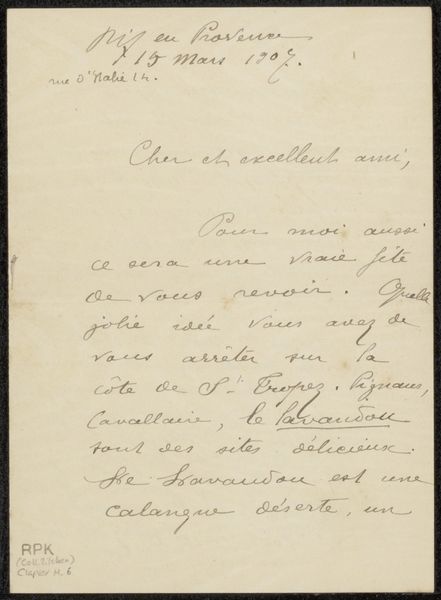 Aix en Provence
15 Mars 1907.
rue d'Italie 14.
Cher et excellent ami,
Pour moi aussi
ce sera une vraie fête
de vous revoir. Quelle
jolie idée vous avez de
vous arrêter sur la
côte de St. Tropez.
Cavallaire, le Lavandou
sont des sites délicieux.
Le Lavandou est une
calanque déserte, un
RPK
(Coll. Zilcken)
Clapier M. 6